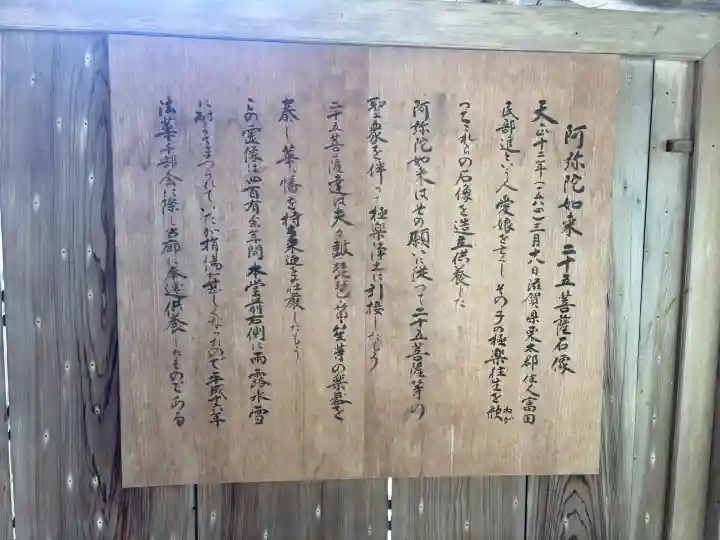 阿弥陀如来二十五菩薩石像
天正十二年(一五八四)三月十八日滋賀県栗太郡住人富田
民部進という人愛娘を亡くしその子の極楽往生を欣ねが
ってこれらの石像を造立供養した
阿弥陀如来はその願いに従って二十五菩薩等の
聖衆を伴って極楽浄土に引接したもう
二十五菩薩達は夫々鼓琵琶 笙等の楽器を
奏し華幡を持ち来迎を荘厳したもう
この霊像は四百有余年間本堂前右側に雨露氷雪
に耐えてまつられていたが損傷甚しくなったので平成十六年
法華千部会に際し当所に奉遷供養したものである